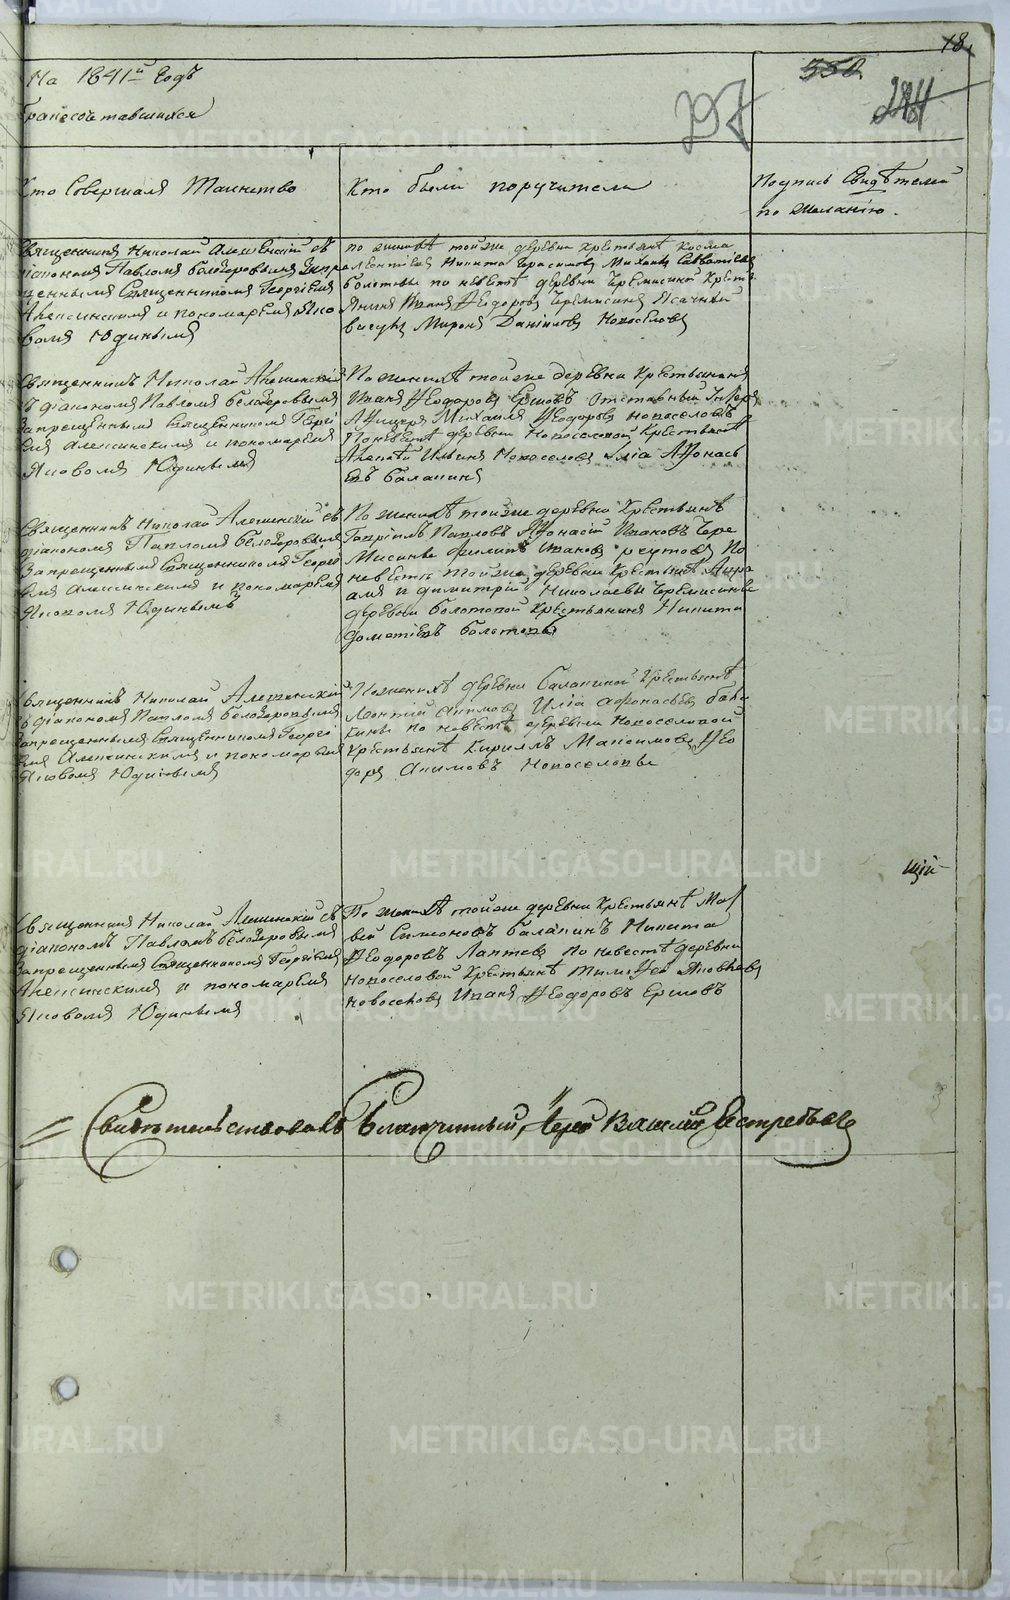 18.
На 1841й Годъ
бракосочетавшихся
Кто Совершалъ Таинство
Кто были поручители
Подпись Свидѣтелей
по желанію.
Священникъ Николай Алешенскій съ
діакономъ Павломъ Белозеровымъ Запре
щеннымъ Священникомъ Георгіемъ
Алексинскимъ и пономаремъ Яко
вомъ Юдинымъ
по женихѣ тойже деревни крестьянѣ Косма
Леонтіевъ Никита Герасимовъ Михаилъ
болотовы по невѣстѣ деревни Черемисиной Кресть
янинъ Иванъ Ѳеодоровъ Черемисинъ
Миронъ Даніиловъ Новоселовъ
Священникъ Николай Алешенскій
съ діакономъ Павломъ Белозеровымъ
Запрещеннымъ Священникомъ Геор
гіемъ Алексинскимъ и пономаремъ
Яковомъ Юдинымъ
По женихѣ тойже деревни Крестьянинъ
Иванъ Ѳеодоровъ Ершовъ Отставный Унтеръ
Афицеръ Михаилъ Ѳеодоровъ новоселовъ
По невѣстѣ деревни Новоселовой Крестьянѣ
Ильинъ Новоселовъ Иліа Афонась
евъ балакинъ
Священникъ Николай Алешенскій съ
діакономъ Павломъ Белозеровымъ
Запрещеннымъ Священникомъ Георгі
емъ Алексинскимъ и пономаремъ
Яковомъ Юдинымъ
По женихѣ тойже деревни Крестьянѣ
Гавріилъ Павловъ Афонасій Ивановъ Чере
мисины Филипъ Ивановъ реутовъ По
невестѣ тойже деревни Крестьянѣ Авра
амъ и Димитрій Николаевы Черемисины
деревни болотовой Крестьянинъ Никита
дометіевъ болотовъ
Священникъ Николай Алешенскій
съ діакономъ Павломъ Белозеровымъ
Запрещеннымъ Священникомъ Георгі
емъ Алексинскимъ и пономаремъ
Яковомъ Юдинымъ
По женихѣ деревни Балакиной Крестьянѣ
Леонтій Акимовъ Иліа Афонасьевъ бала
кины по невестѣ деревни Новоселовой
Крестьянѣ Кириллъ Максимовъ Ѳео
доръ Акимовъ Новоселовы
щій
Священникъ Николай Алешенскій съ
діакономъ Павломъ Белозеровымъ
Запрещеннымъ Священникомъ Георгіемъ
Алексинскимъ и пономаремъ
Яковомъ Юдинымъ
По женихѣ тойже деревни Крестьянѣ Мат
вей Симеоновъ балакинъ Никита
Ѳеодоровъ Лаптевъ по невестѣ деревни
новоселовой Крестьянѣ Тимофей Яковлевъ
новоселовъ Иванъ Ѳеодоровъ Ершовъ
Свидѣтельствовалъ Благочинный, Іерей Василій Ястребовъ
METRIKI.GASO-URAL.RU